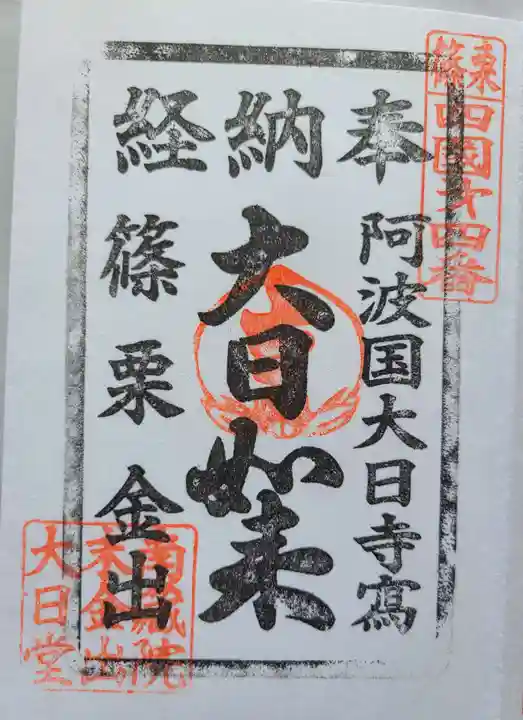 篠栗
四國㐧四番
奉
納
経
阿波国大日寺寫
大日如来
篠栗金出
南蔵院
末金出
大日堂